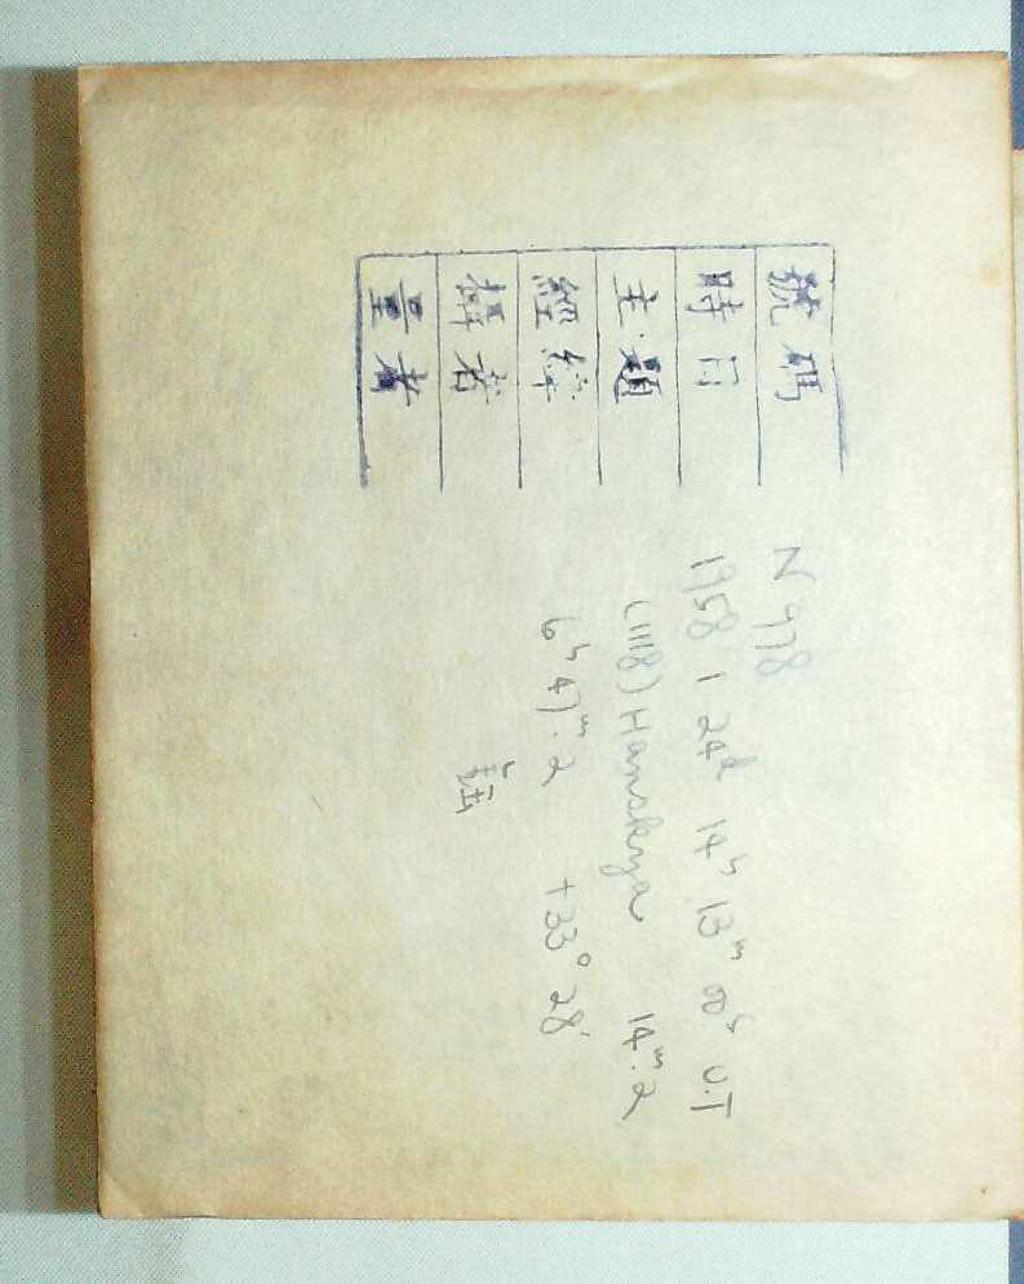 號碼 N 978
時日 1958 1 24d 14h 13m 00s U.T
主題 (1118) Hanskya 14m.2
經緯 6h 47m.2 +33° 28'
攝者
量者